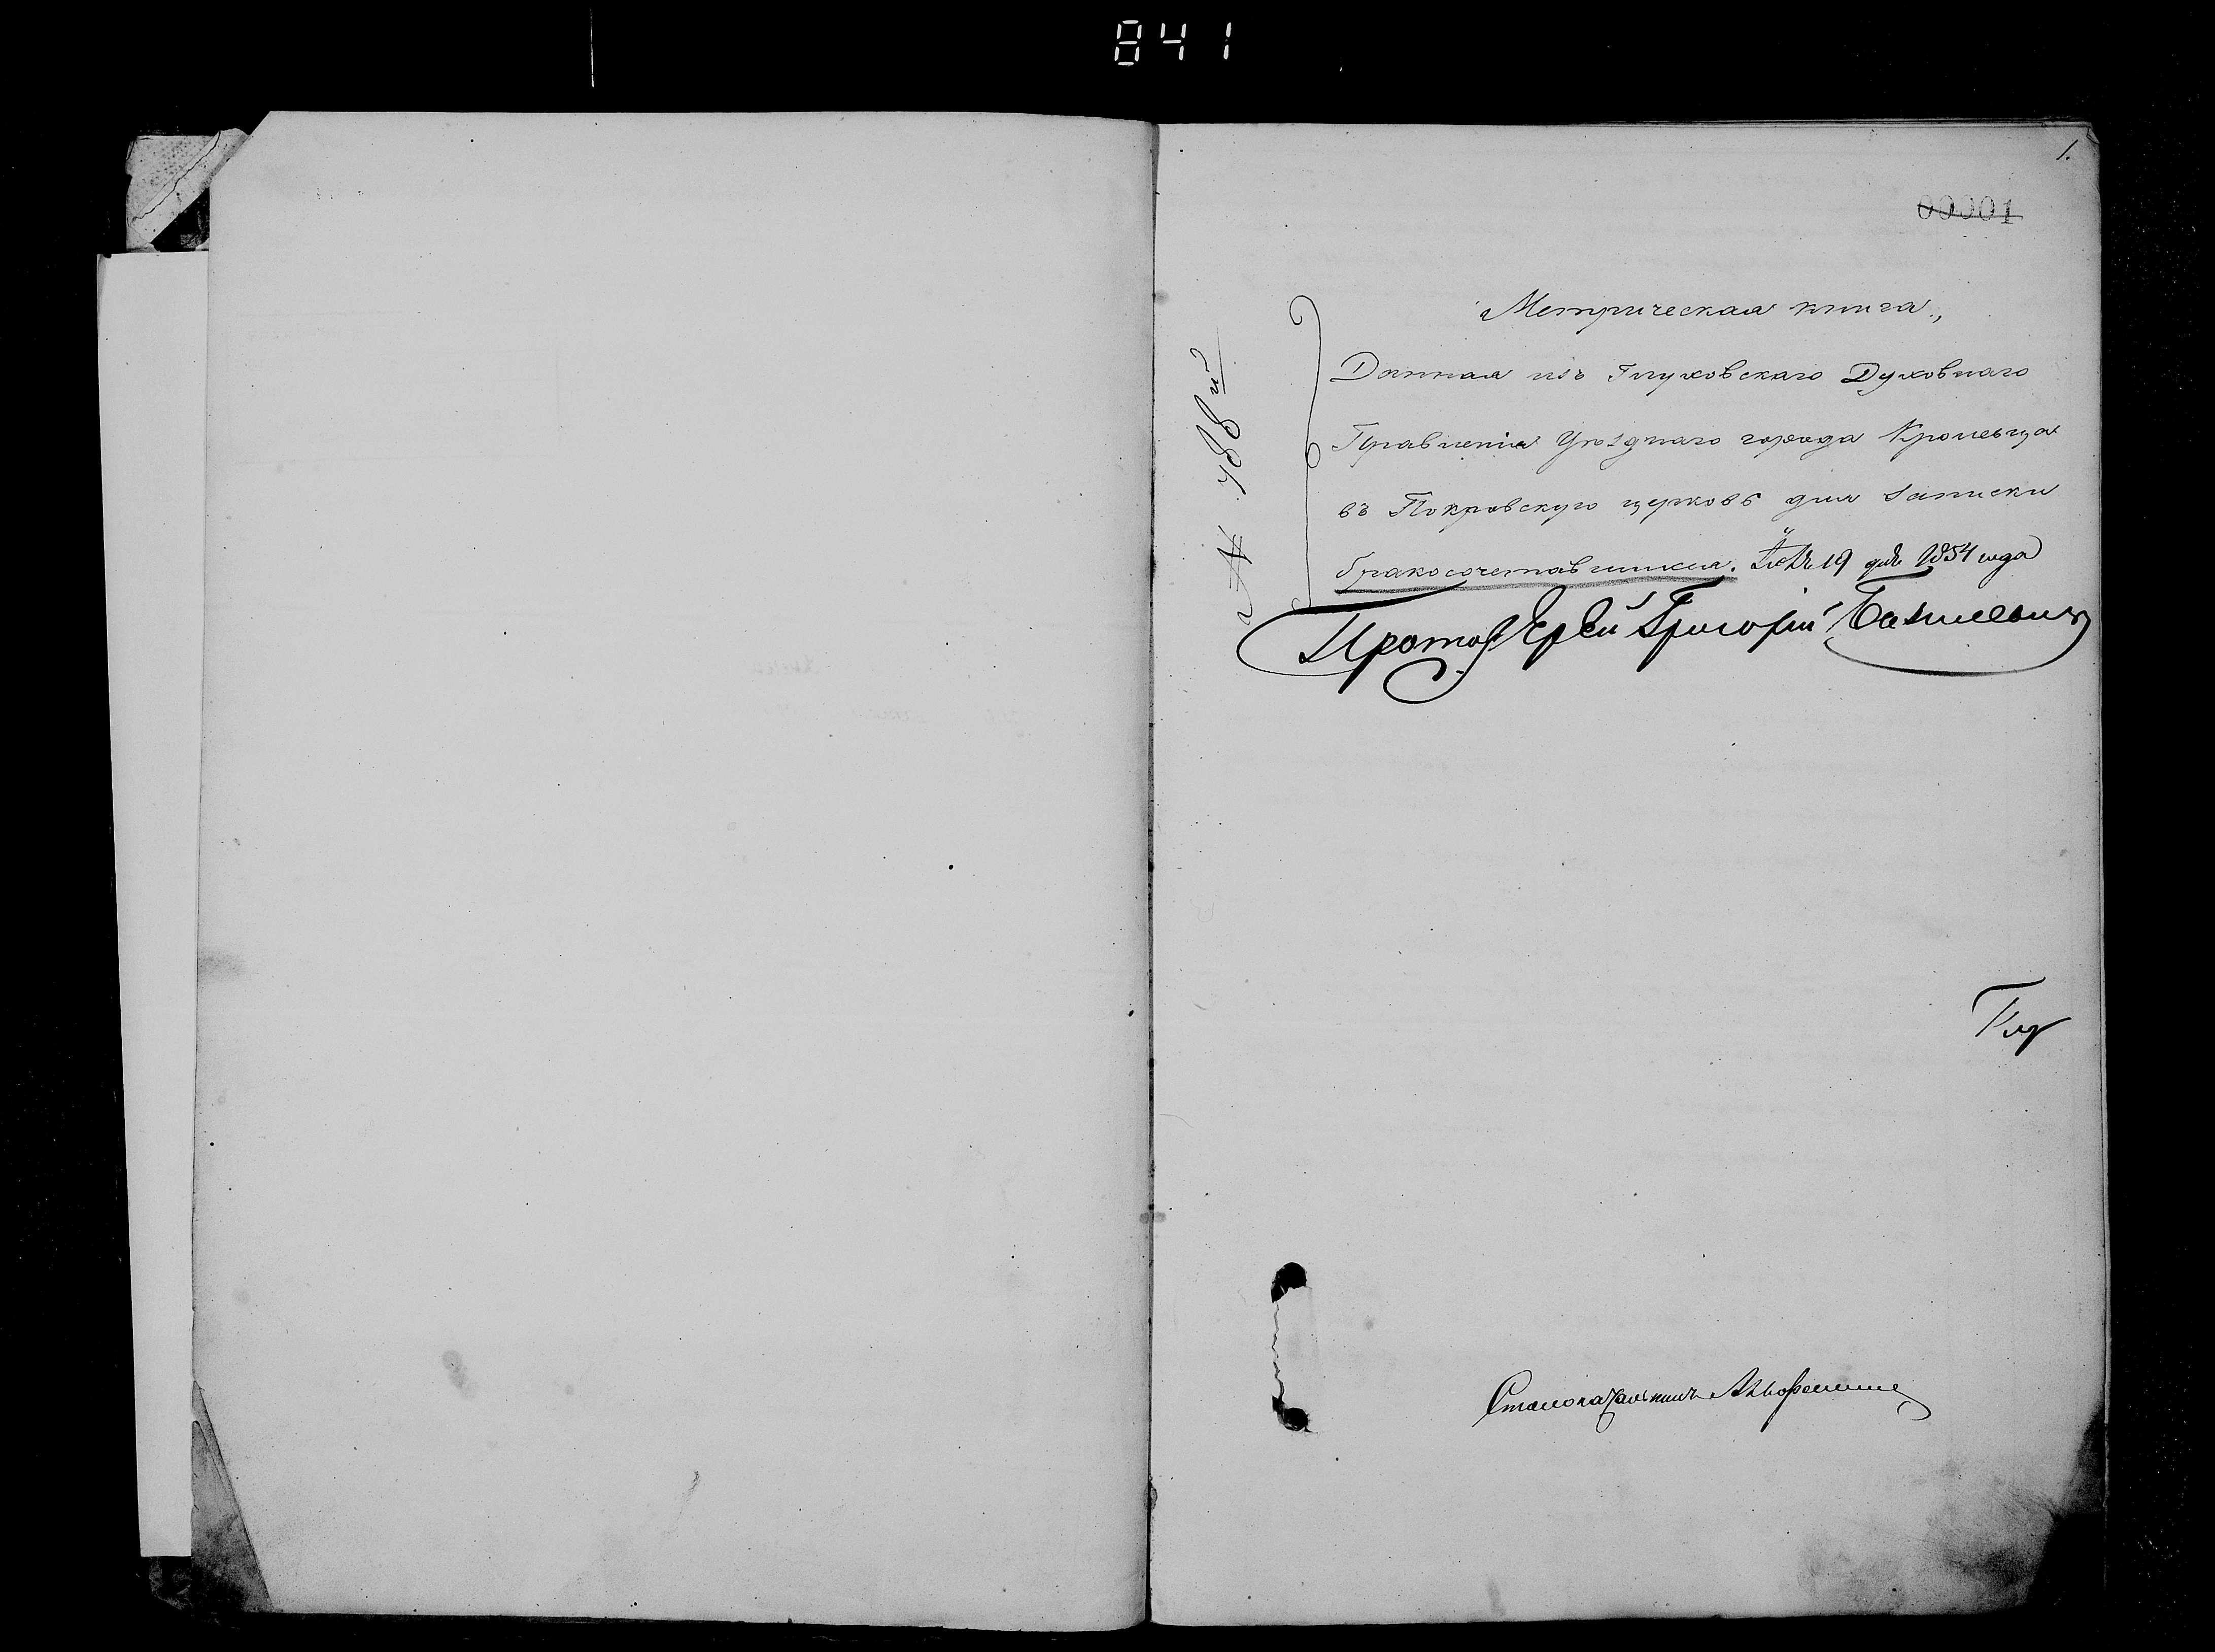 841
1.
00001
Метрическая книга,
Данная изъ Глуховскаго Духовнаго
Правленія Уѣзднаго города Кролевца
въ Покровскую церковь для записки
бракосочетавшихся. 19 1854 года
Протоіерей Григорій
№ 788й
Глу
Столоначальникъ